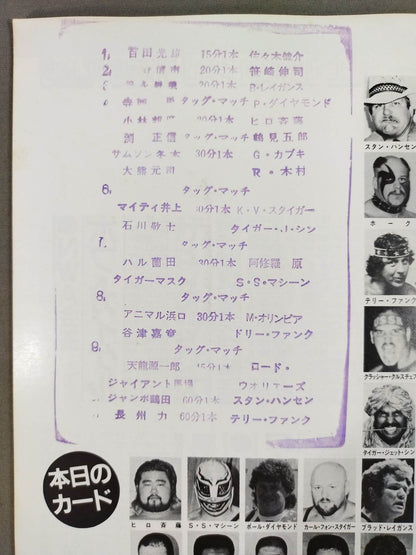 1. 百田光雄 15分1本 佐々木健介
2. 南 20分1本 笹崎伸司
B・レイガンス
タッグ・マッチ P・ダイヤモンド
小林邦昭 30分1本 ヒロ斉藤
渕 正信 タッグ・マッチ 鶴見五郎
サムソン冬木 30分1本 G・カブキ
大熊元司 R・木村
6. タッグ・マッチ
マイティ井上 30分1本 K・V・スタイガー
石川敬士 タイガー・J・シン
7. タッグ・マッチ
ハル薗田 30分1本 阿修羅 原
タイガーマスク S・S・マシーン
8. タッグ・マッチ
アニマル浜口 30分1本 M・オリンピア
谷津嘉章 ドリー・ファンク
9. タッグ・マッチ
天龍源一郎 15分1本 ロード・
ジャイアント馬場 ウオリアーズ
ジャンボ鶴田 60分1本 スタン・ハンセン
長州 力 60分1本 テリー・ファンク
スタン・ハンセン
ホーク
テリー・ファンク
クラッシャー・クルスチェフ
タイガー・ジェット・シン
本日の
カード
ヒロ斉藤 S・S・マシーン ポール・ダイヤモンド カール・フォン・スタイガー ブラッド・レイガンス